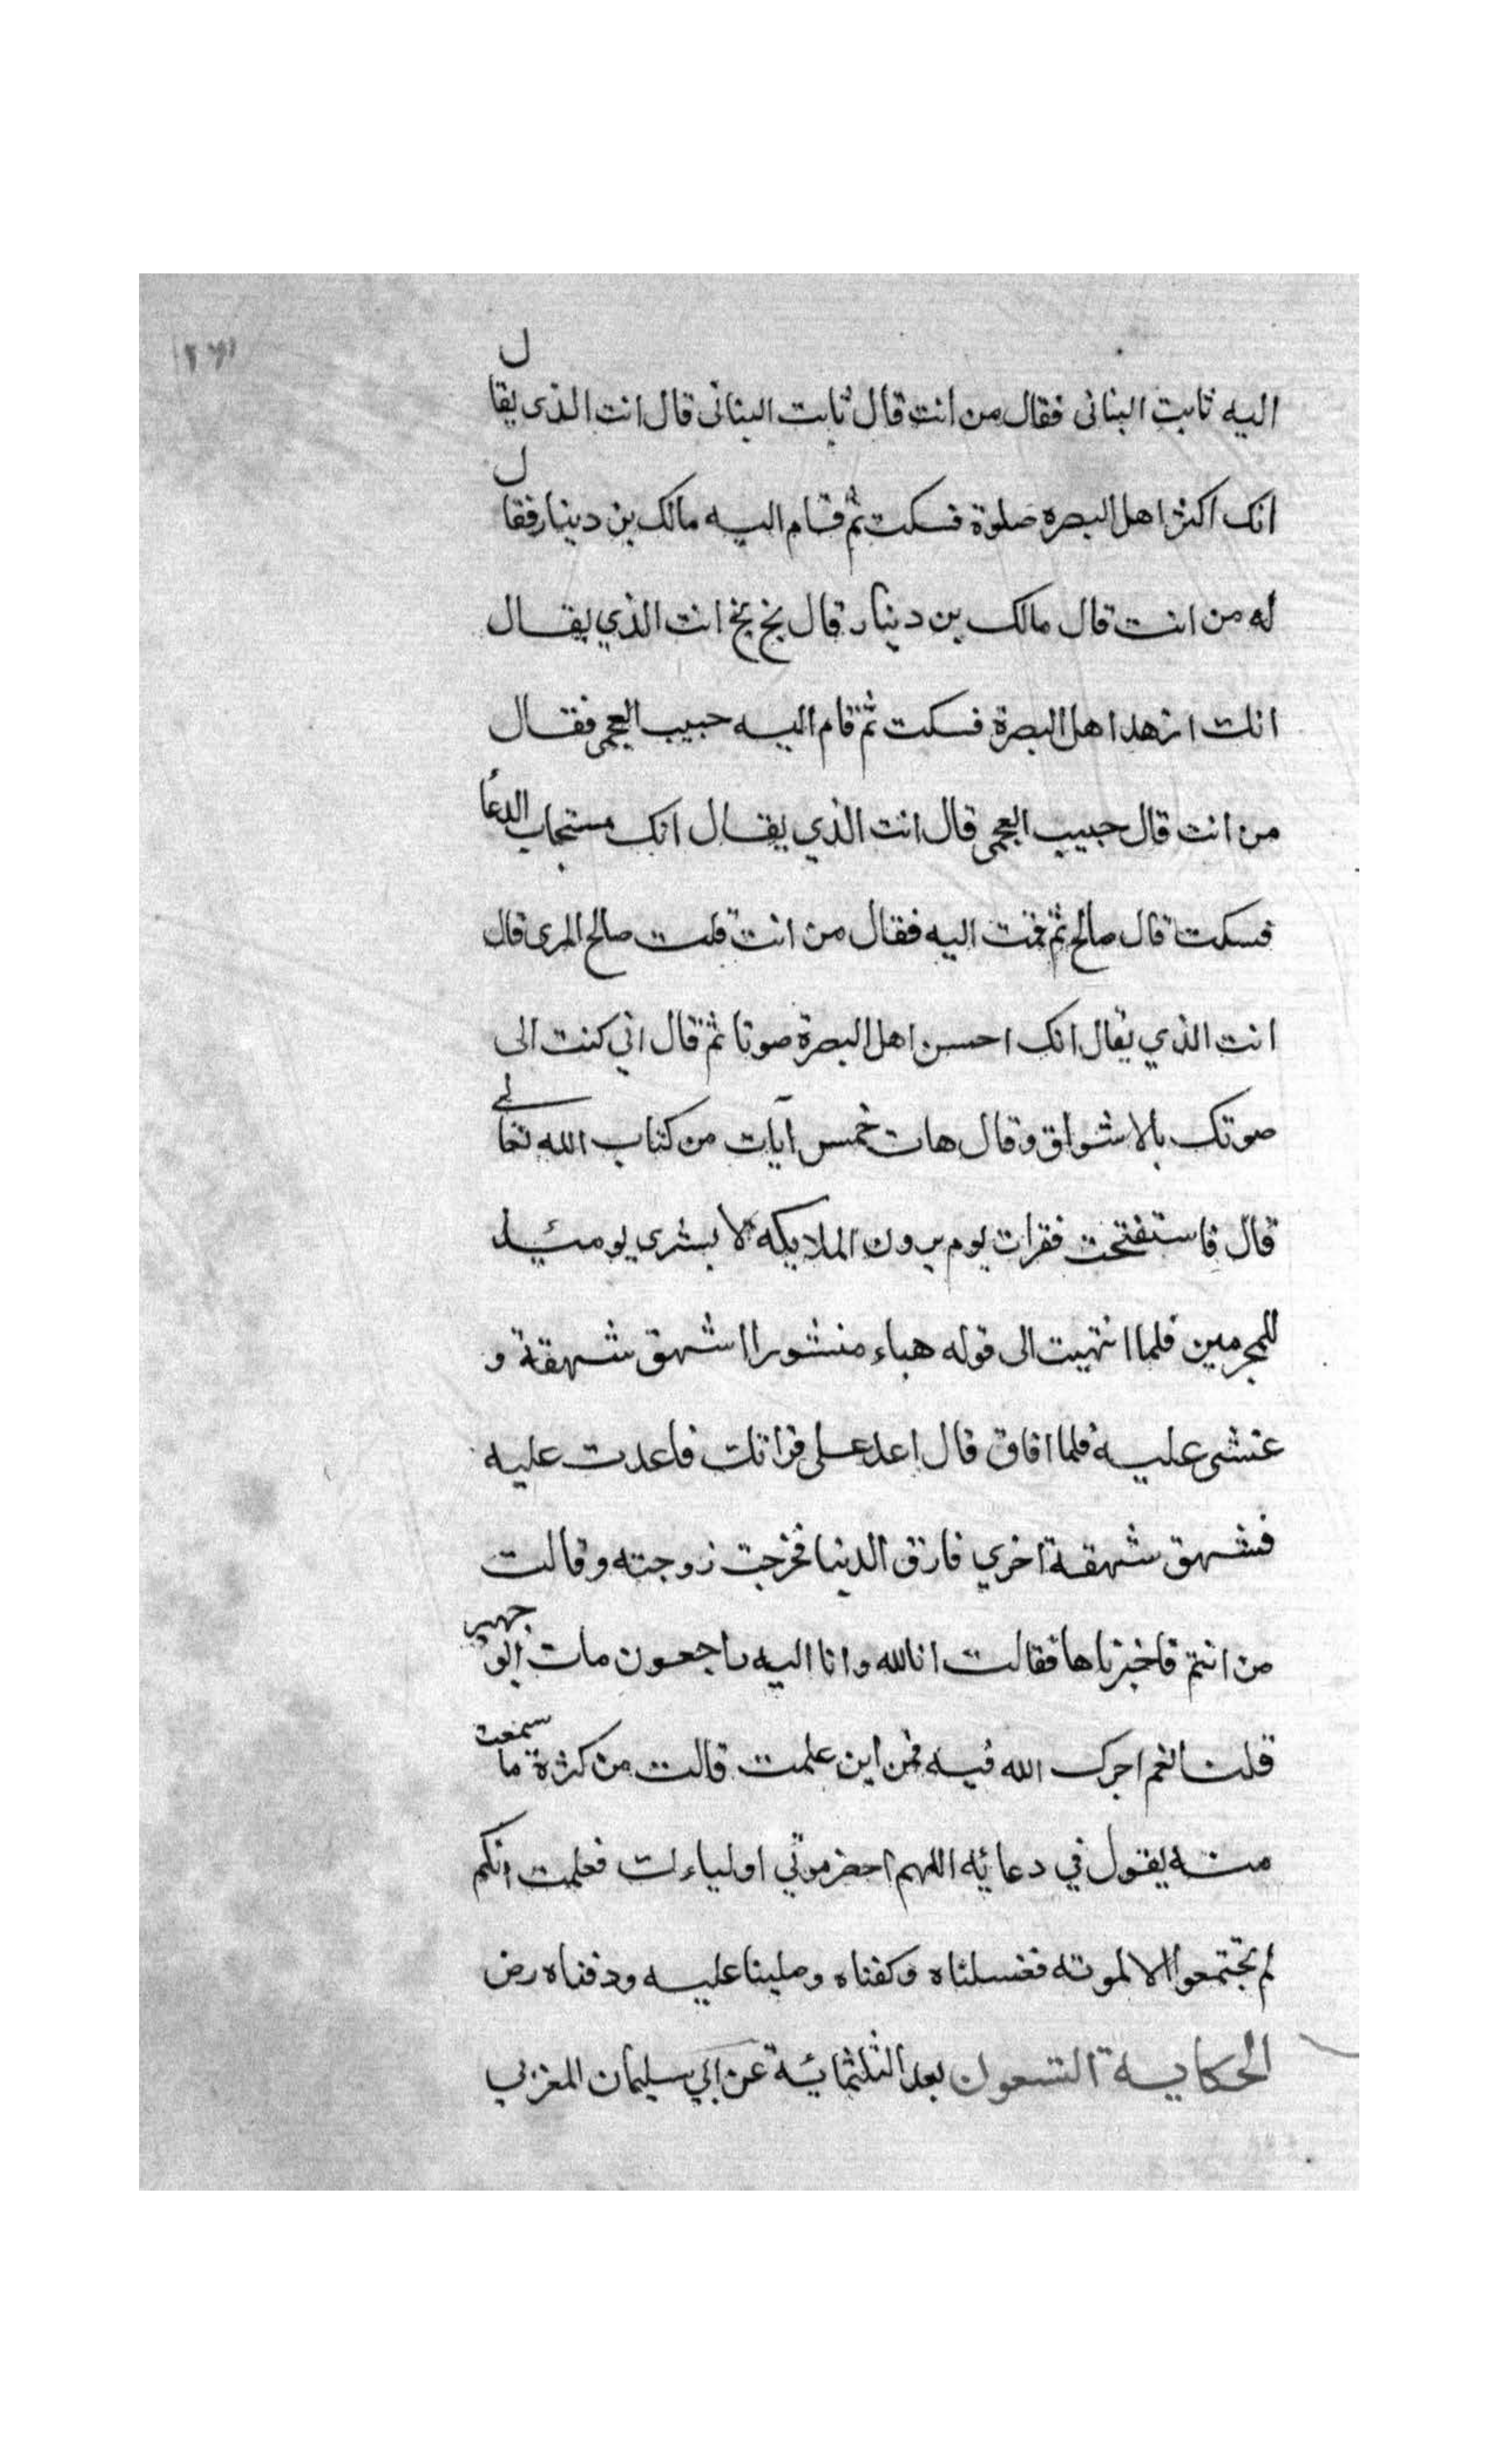 اليه ثابت البنانى فقال من انت قال ثابت البنانى قال انت الذى يقال
انك اكثر اهل البصره صلوة فسكت ثم قام اليه مالك بن دينار فقال
له من انت قال مالك بن دينار قال بخ بخ انت الذي يقال
انك ازهد اهل البصرة فسكت ثم قام اليه حبيب العجمى فقال
من انت قال حبيب العجمى قال انت الذي يقال انك مستجاب الدعا
فسكت قال صالح ثم قمت اليه فقال من انت قلت صالح المرى قال
انت الذي يقال انك احسن اهل البصرة صوتا ثم قال اني كنت الى
صوتك بالاشواق وقال هات خمس آيات من كتاب الله تعالى
قال فاستفتحت فقرات يوم يرون الملايكه لا بشرى يومئيذ
للمجرمين فلما انتهيت الى قوله هباء منثورا اشهق شهقة و
غشى عليه فلما افاق قال اعد على قراتك فاعدت عليه
فشهق شهقة اخري فارق الدنيا فخرجت زوجته وقالت
من انتم فاخبرناها فقالت انا لله وانا اليه راجعون مات ابو جهير
قلنا نعم اجرك الله فيه فمن اين علمت قالت من كثرة ما سمعت
منه يقول في دعائه اللهم احضر موتي اولياءك فعلمت انكم
لم تجتمعوا الا لموته فغسلناه وكفناه وصلينا عليه ودفناه رض
الحكاية التسعون بعد الثلثمائة عن ابي سليمان المغربي